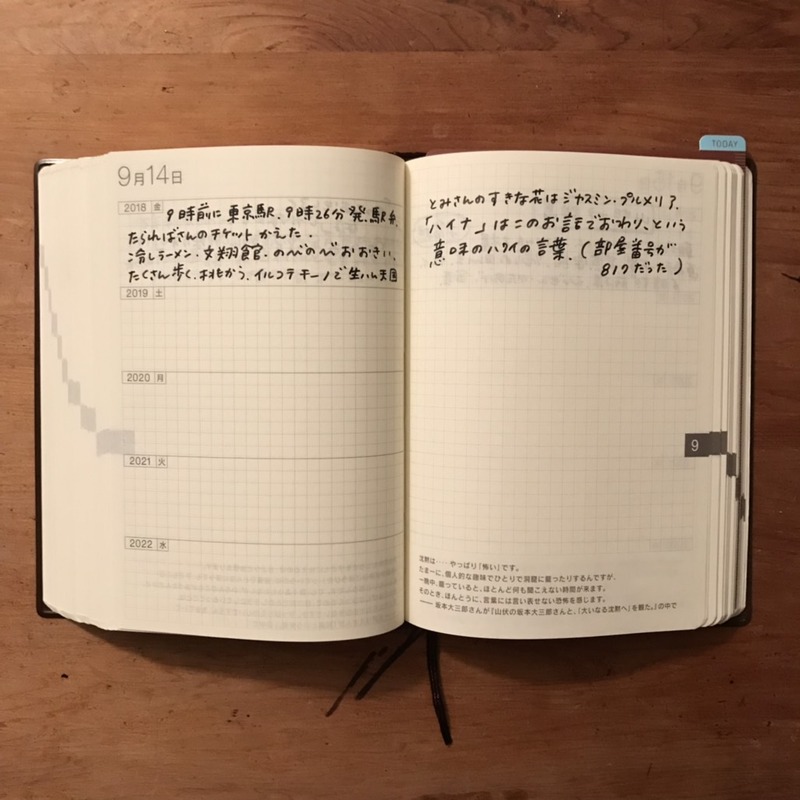 9月14日
2018 金
9時前に東京駅、9時26分発、駅弁、
たらればさんのチケットかえた.
冷しラーメン・文翔館・のべのべおおきい、
たくさん歩く、桃かう、イルコテモーノで生ハム天国
2019 土
2020 月
2021 火
2022 水
TODAY
とみさんのすきな花はジャスミン・プルメリア.
「ハイナ」はこのお話でおわり、という
意味のハワイの言葉.(部屋番号が
817だった)
9
沈黙は……やっぱり「怖い」です。
たまーに、個人的な趣味でひとりで洞窟に籠ったりするんですが、
一晩中、籠っていると、ほとんど何も聞こえない時間が来ます。
そのとき、ほんとうに、言葉には言い表せない恐怖を感じます。
―― 坂本大三郎さんが『山伏の坂本大三郎さんと、『大いなる沈黙へ』を観た。』の中で